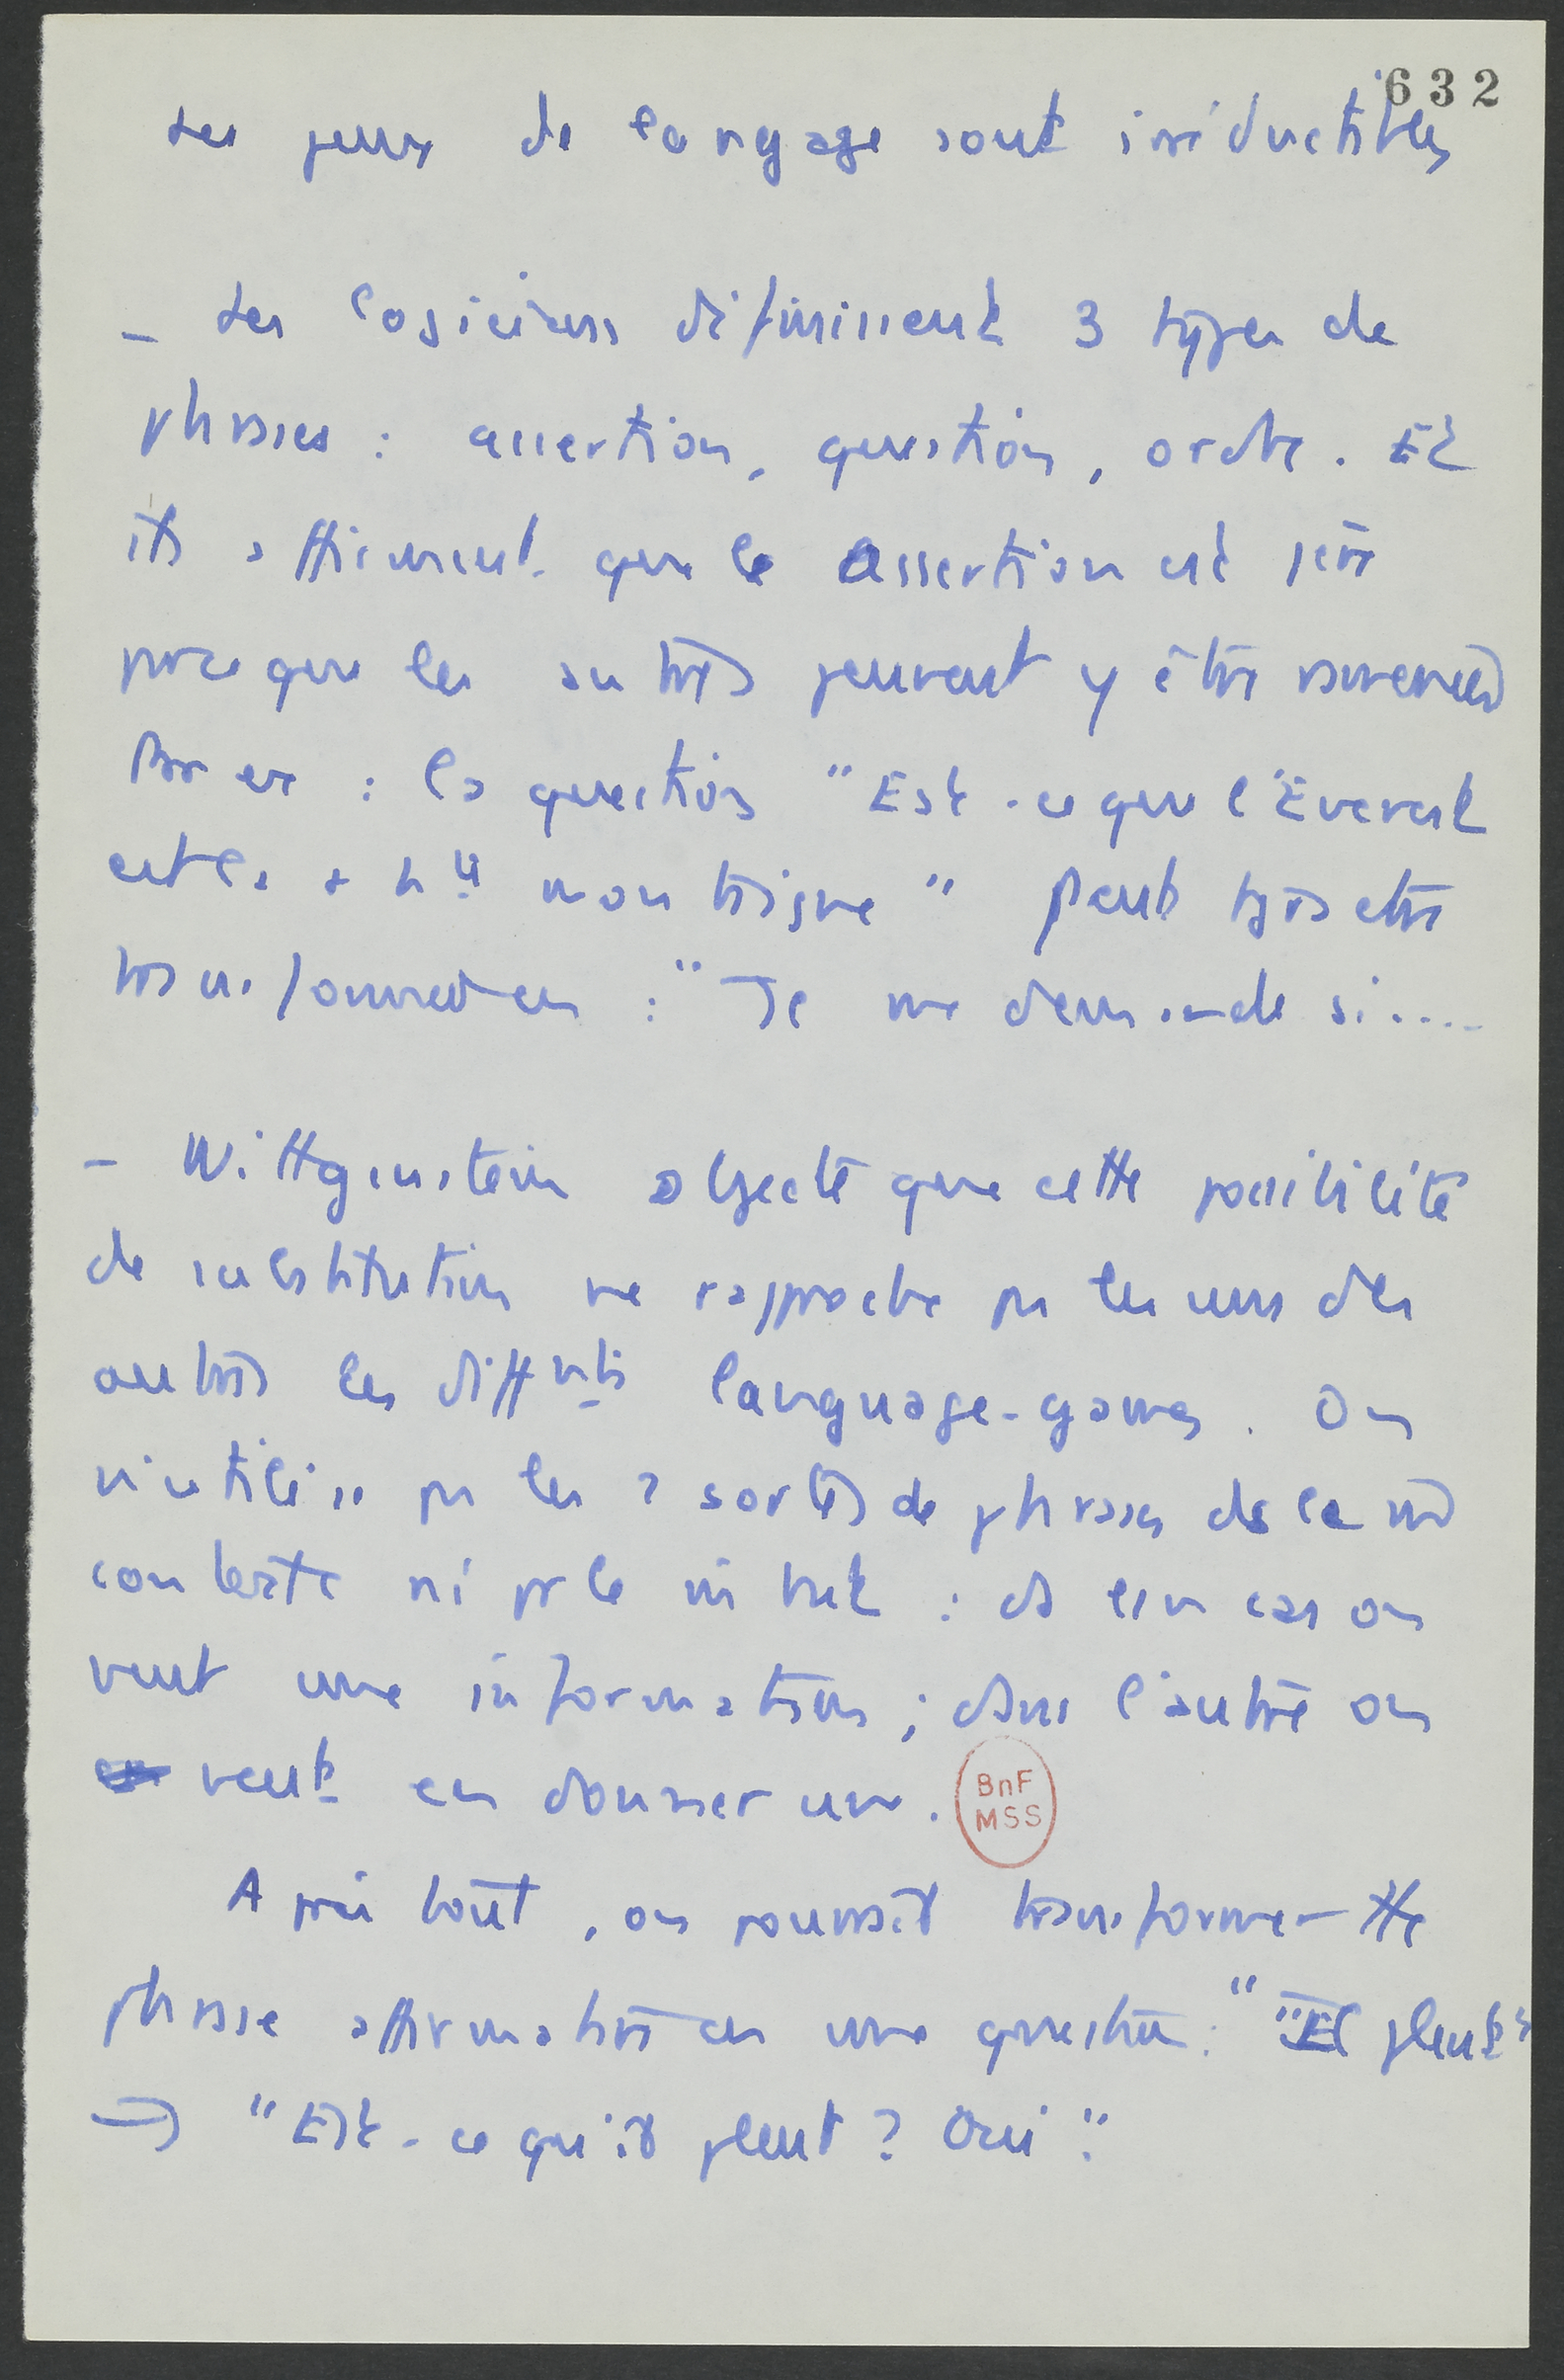 632
Les jeux de langage sont irréductibles
- Les logiciens définissent 3 types de
phrases : assertion, question, ordre. Et
ils affirment que le assertion est
parce que les autres peuvent y être ramenées
Par ex : la question "Est-ce que l'Everest
est la + hte montagne" peut être
transformée en : "Je me demande si....
- Wittgenstein objecte que cette possibilité
de substitution ne rapproche pas les uns des
autres les diffnts language-games. On
n'utilise pas les 2 sortes de phrases ds le m̄
contexte ni pr le m̄ but : ds un cas on
veut une information ; dans l'autre on
veut en donner une.
BnF
MSS
Après tout, on pourrait transformer tte
phrase affirmative en une question : "Il pleut"
→ "Est-ce qu'il pleut ? Oui".